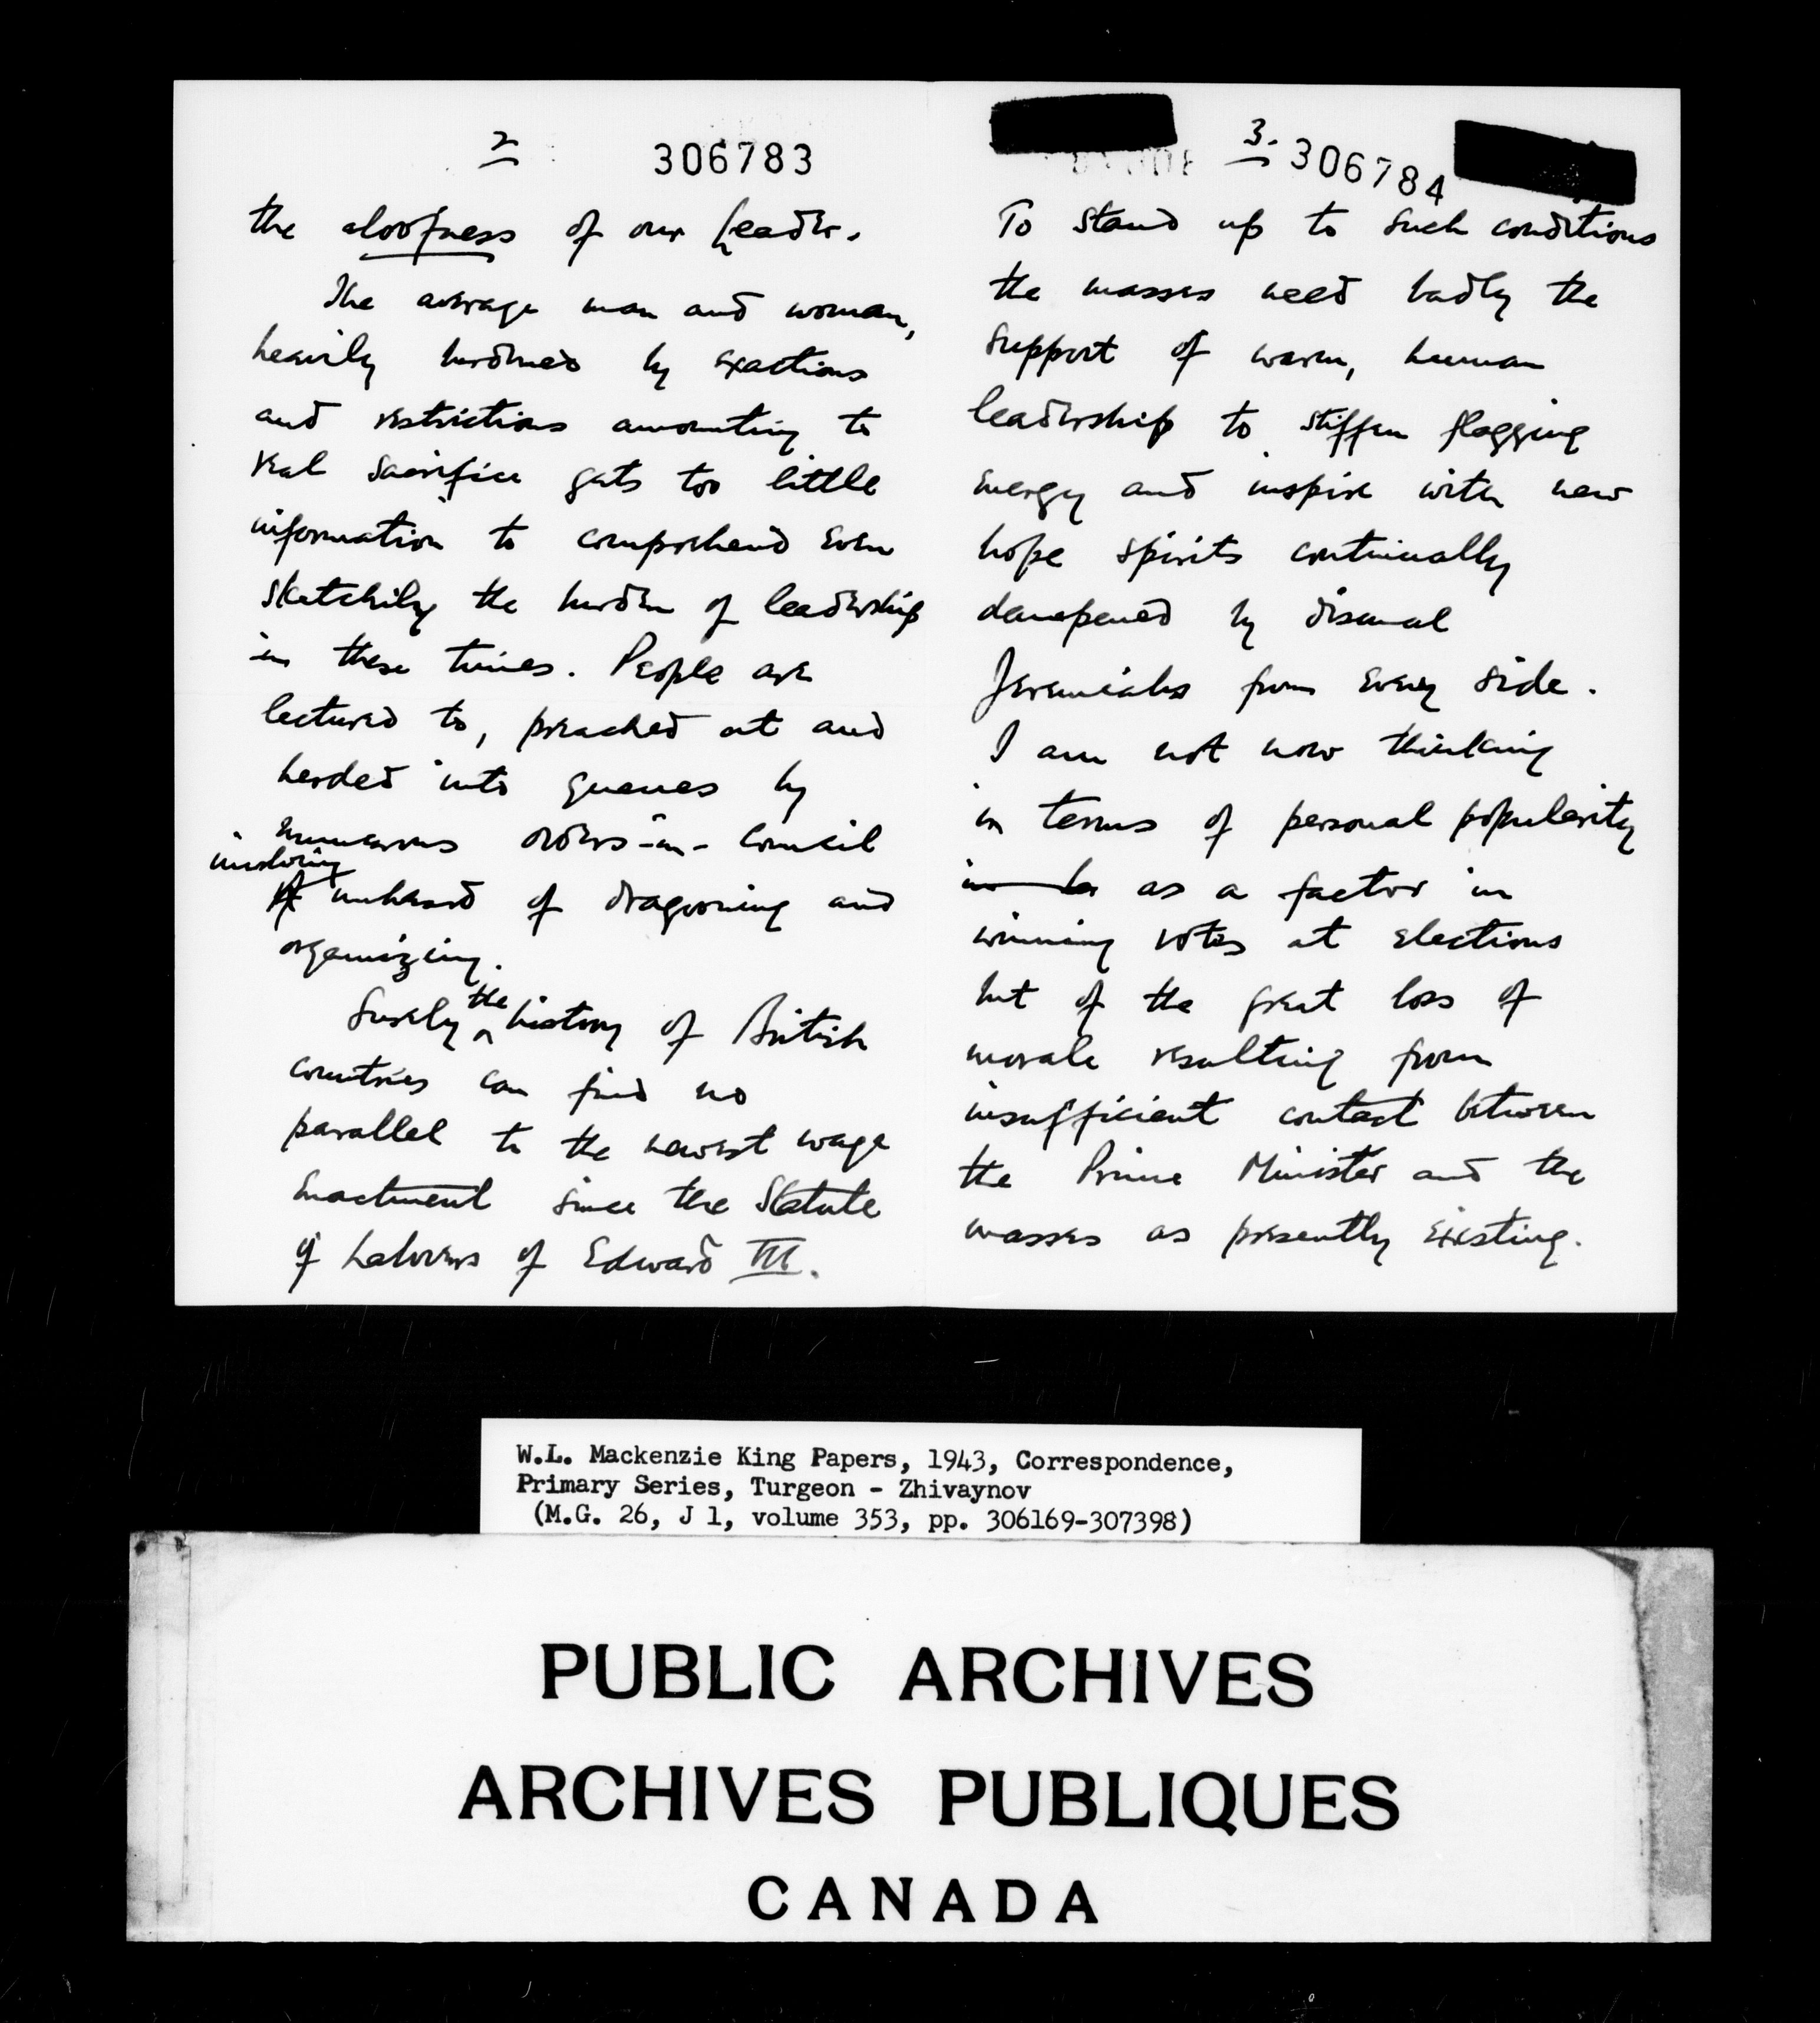 2
306783
the aloofness of our Leader.
The average man and woman,
heavily burdened by exactions
and restrictions amounting to
real sacrifice gets too little
information to comprehend even
sketchily the burden of leadership
in these times. People are
lectured to, preached at and
herded into queues by
numerous orders-in-Council
involving
unheard of dragooning and
organizing.
Surely the history of British
countries can find no
parallel to the newest wage
enactment since the Statute
of Laborers of Edward III.
3.
306784
To stand up to such conditions
the masses need badly the
support of warm, human
leadership to stiffen flagging
energy and inspire with new
hope spirits continually
dampened by dismal
Jeremiahs from every side.
I am not now thinking
in terms of personal popularity
as a factor in
winning votes at elections
but of the great loss of
morale resulting from
insufficient contact between
the Prime Minister and the
masses as presently existing.
W.L. Mackenzie King Papers, 1943, Correspondence,
Primary Series, Turgeon - Zhivaynov
(M.G. 26, J 1, volume 353, pp. 306169-307398)
PUBLIC ARCHIVES
ARCHIVES PUBLIQUES
CANADA